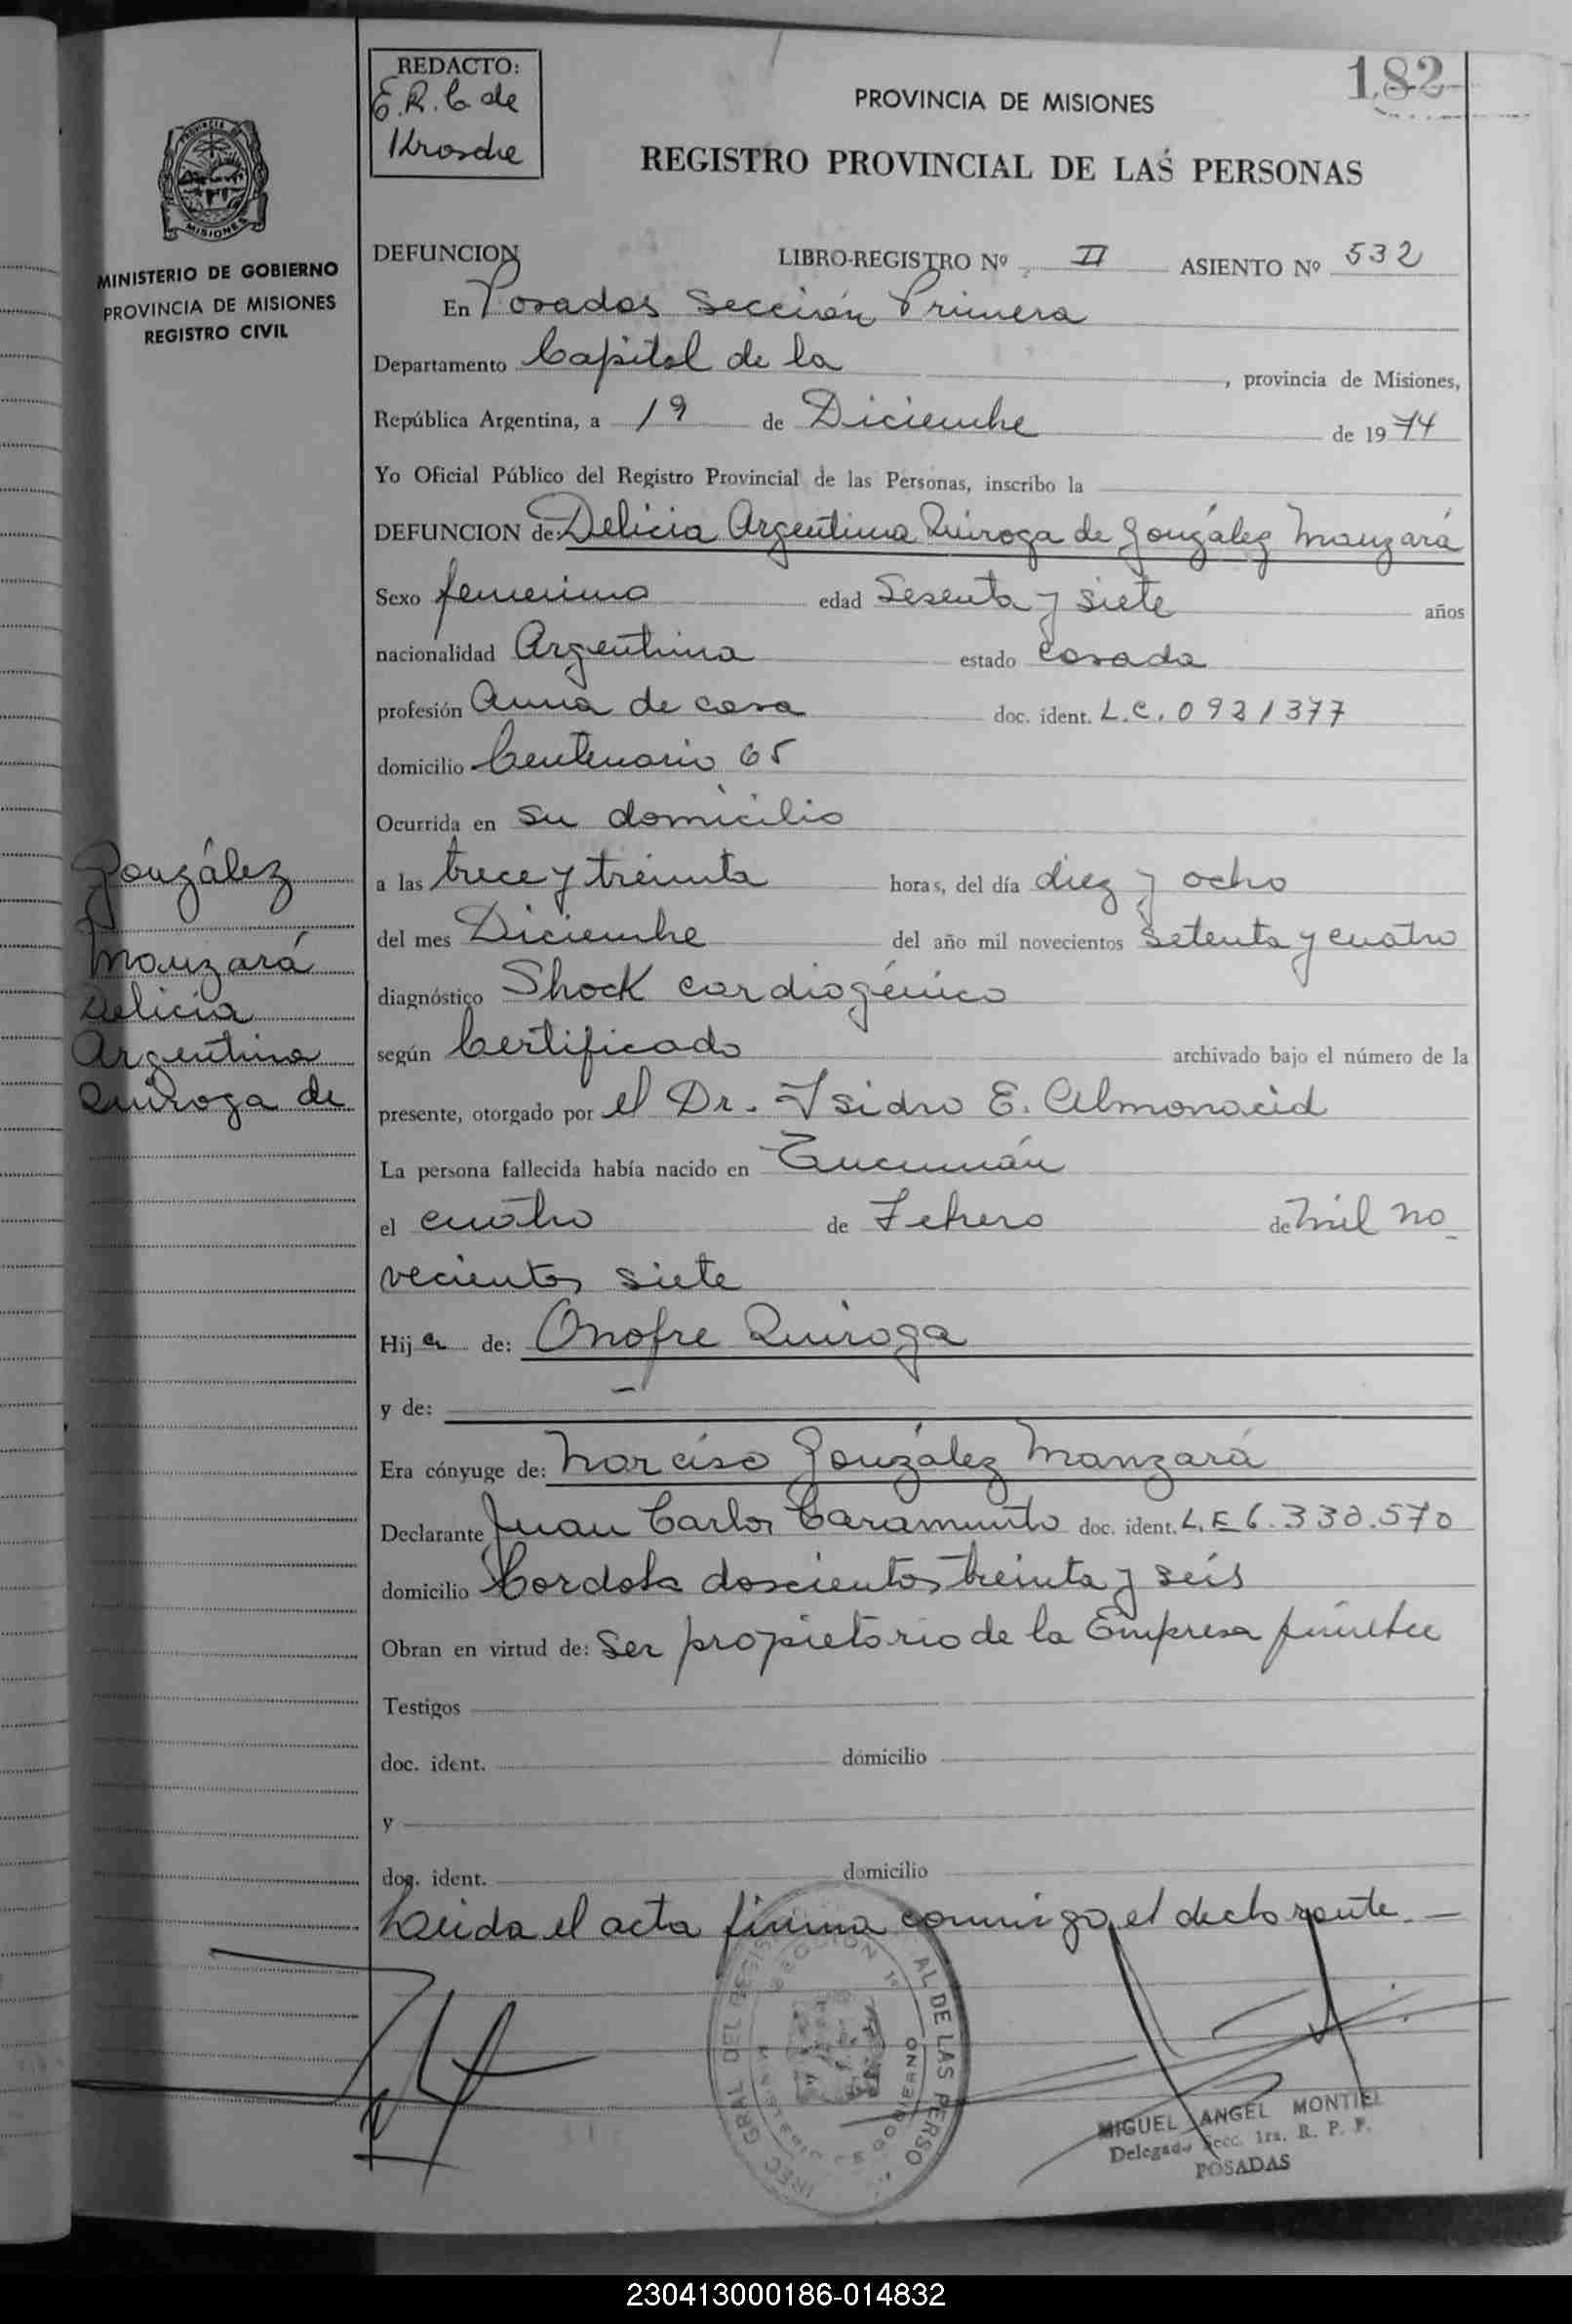 REDACTO:
E.R. C de
Krosche
182
PROVINCIA DE MISIONES
REGISTRO PROVINCIAL DE LAS PERSONAS
MISIONES
MINISTERIO DE GOBIERNO
PROVINCIA DE MISIONES
REGISTRO CIVIL
DEFUNCION LIBRO-REGISTRO Nº II ASIENTO Nº 532
En Posadas Sección Primera
Departamento Capital de la , provincia de Misiones,
República Argentina, a 19 de Diciembre de 1974
Yo Oficial Público del Registro Provincial de las Personas, inscribo la
DEFUNCION de: Delicia Argentina Quiroga de González Manzará
Sexo femenino edad Sesenta y siete años
nacionalidad Argentina estado casada
profesión Ama de casa doc. ident. L.C. 0921377
domicilio Centenario 65
Ocurrida en su domicilio
a las trece y treinta horas, del día diez y ocho
del mes Diciembre del año mil novecientos setenta y cuatro
diagnóstico Shock cardiogénico
según Certificado archivado bajo el número de la
presente, otorgado por el Dr. Isidro E. Almonacid
La persona fallecida había nacido en Tucumán
el cuatro de Febrero de mil no
vecientos siete
Hija de: Onofre Quiroga
y de: —
Era cónyuge de: Narciso González Manzará
Declarante Juan Carlos Caramuto doc. ident. L.E 6.330.570
domicilio Cordoba doscientos treinta y seis
Obran en virtud de: Ser propietario de la Empresa fúnebre
Testigos
doc. ident. domicilio
y
doc. ident. domicilio
Leida el acta firma conmigo el declarante.—
González
Manzará
Delicia
Argentina
Quiroga de
MIGUEL ANGEL MONTIEL
Delegado Secc. 1ra. R. P. P.
POSADAS
230413000186-014832